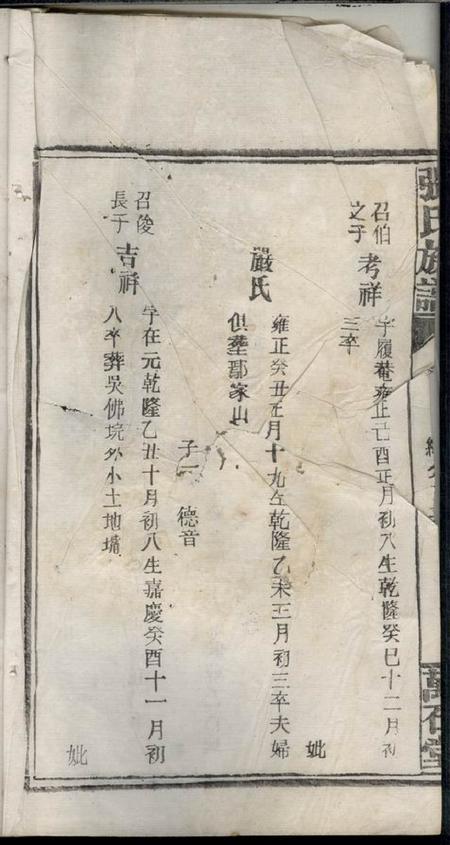 張氏族譜
萬石堂
召伯
之子
考祥
字履菴雍正己酉正月初八生乾隆癸巳十二月初
三卒
妣
嚴氏
雍正癸丑正月十九生乾隆乙未正月初三卒夫婦
俱塟鄢家山
子一 德音
召俊
長子
吉祥
字在元乾隆乙丑十月初八生嘉慶癸酉十一月初
八卒葬吳佛垸外小土地墩
妣